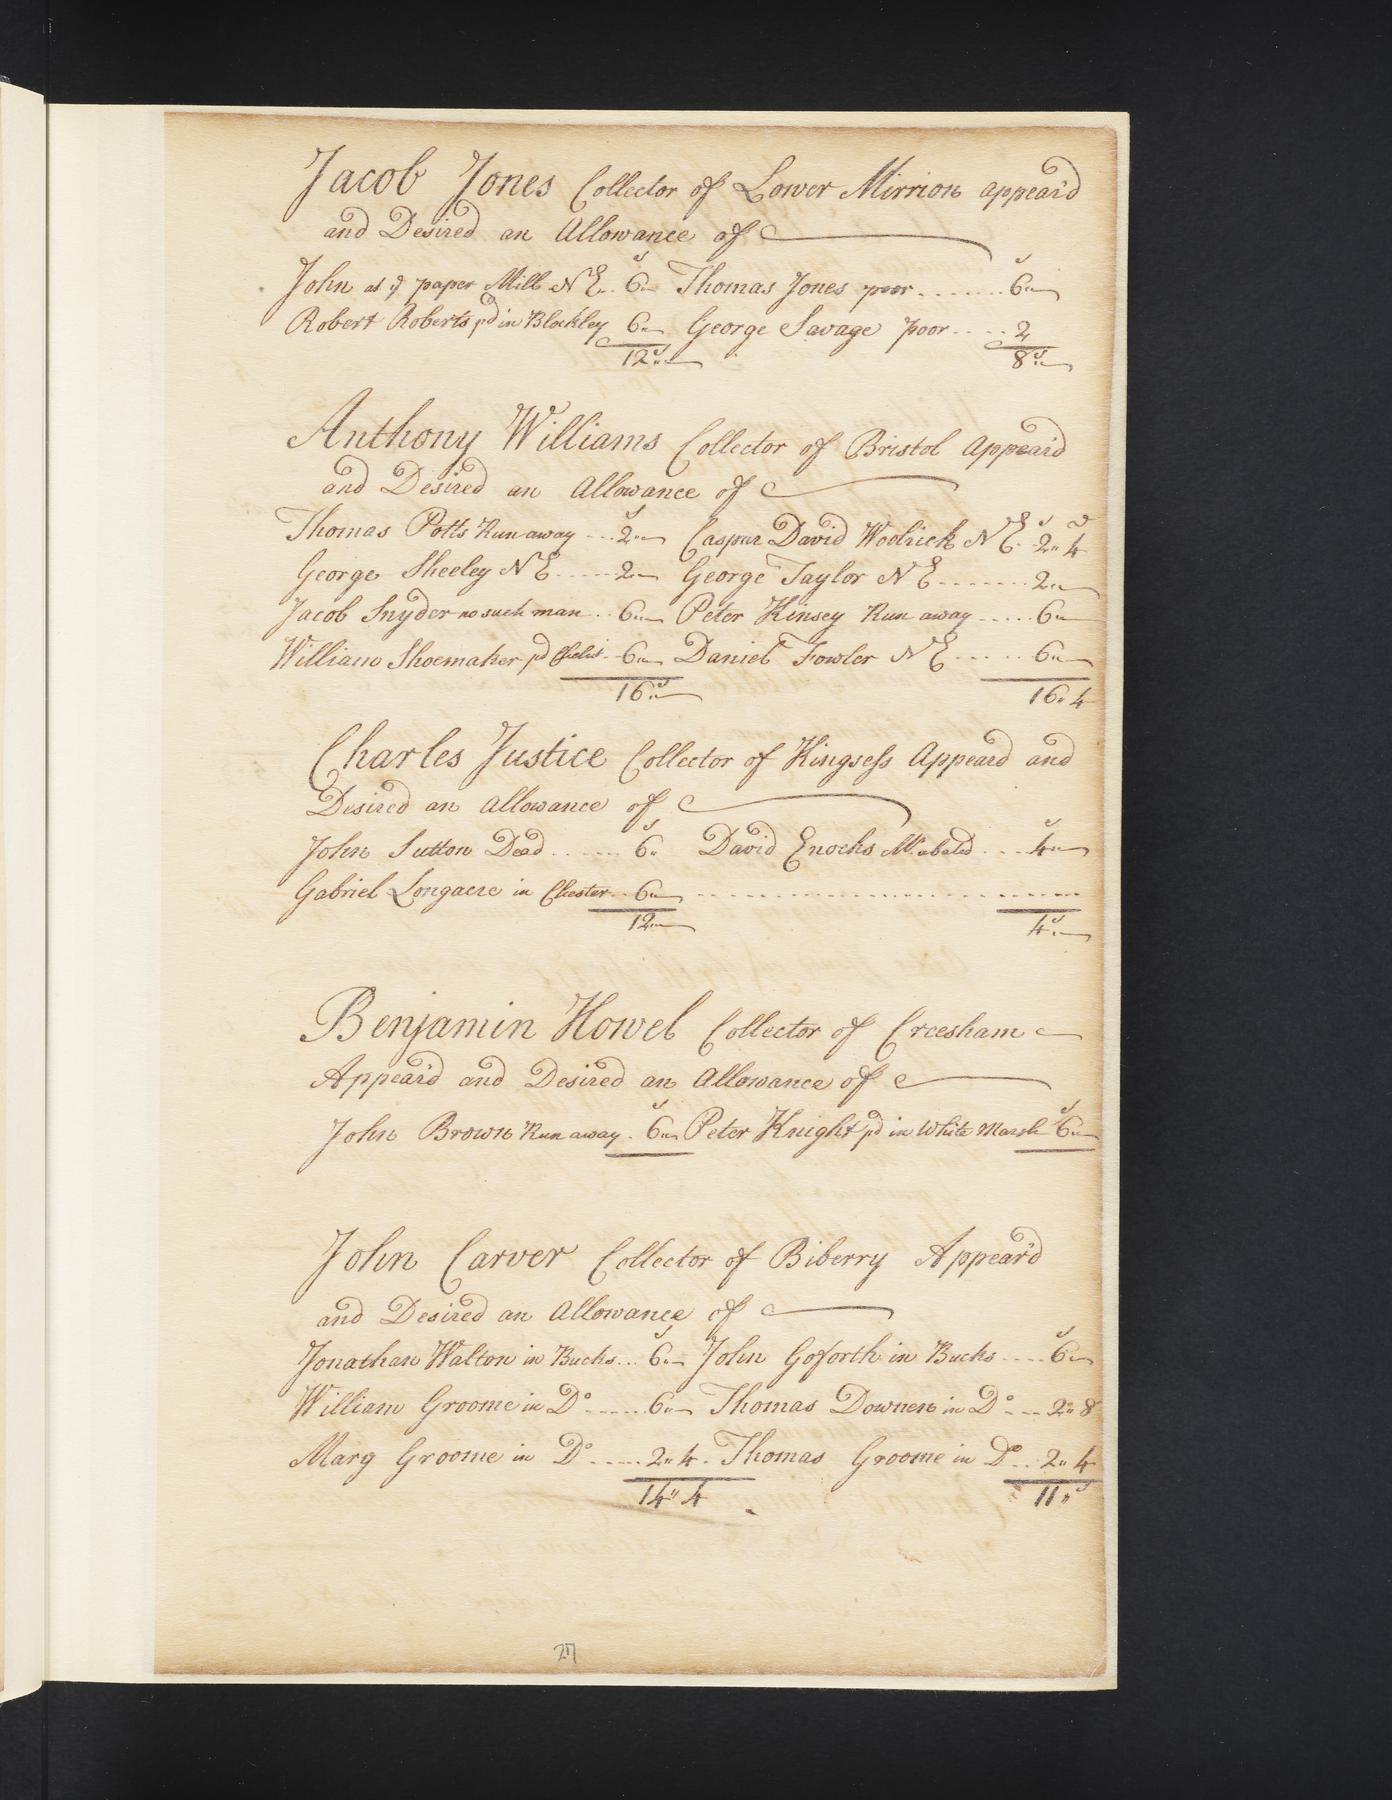 Jacob Jones Collector of Lower Mirrion appear'd
and Desired an Allowance of
John at ye paper Mill N E .. 6s Thomas Jones poor ....... 6s
Robert Roberts pd in Blockley 6 George Savage poor .... 2
12s 8s
Anthony Williams Collector of Bristol Appear'd
and Desired an Allowance of
Thomas Potts Run away ... 2s Caspar David Woolrick N E. 2s 4d
George Sheeley N E ..... 2 George Taylor N E ....... 2
Jacob Snyder no such man .. 6 Peter Kinsey Run away ..... 6
William Shoemaker pd .. 6 Daniel Fowler N E ..... 6
16s 16 4
Charles Justice Collector of Kingsess Appeard and
Desired an allowance of
John Sutton Dead ...... 6s David Enochs abated ... 4s
Gabriel Longacre in Chester .. 6
12 4s
Benjamin Howel Collector of Creesham
Appear'd and Desired an Allowance of
John Brown Run away . 6s Peter Knight pd in White Marsh 6s
John Carver Collector of Biberry Appear'd
and Desired an Allowance of
Jonathan Walton in Bucks ... 6s John Goforth in Bucks .... 6s
William Groome in Do ..... 6 Thomas Downen in Do ... 2 8
Marg Groome in Do ..... 2 4 . Thomas Groome in Do .. 2 4
14 4 11s
27